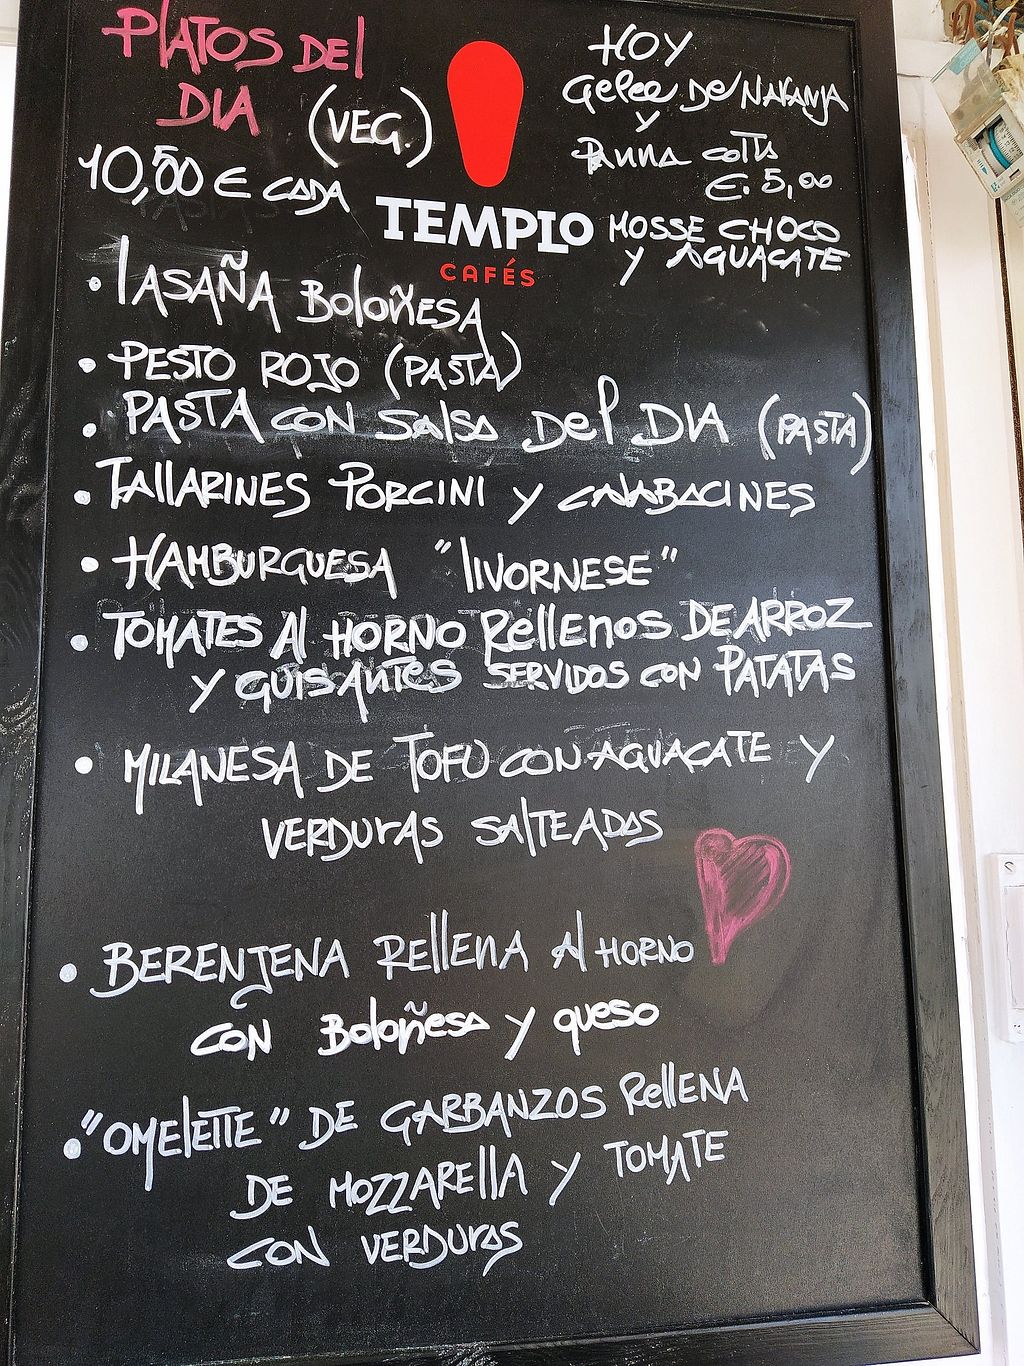 PLATOS DEL
DIA (VEG.)
10,50 € CADA
TEMPLO
CAFÉS
HOY
Gelee De NARANJA
y
PANNA COTTA
€. 5,00
MOSSE CHOCO
Y AGUACATE
• LASAÑA BOLOÑESA
• PESTO ROJO (PASTA)
• PASTA CON SALSA DEL DIA (PASTA)
• TALLARINES PORCINI Y CALABACINES
• HAMBURGUESA "LIVORNESE"
• TOMATES AL HORNO RELLENOS DE ARROZ
Y GUISANTES SERVIDOS CON PATATAS
• MILANESA DE TOFU CON AGUACATE Y
VERDURAS SALTEADAS
• BERENJENA RELLENA AL HORNO
CON BOLOÑESA Y QUESO
• "OMELETTE" DE GARBANZOS RELLENA
DE MOZZARELLA Y TOMATE
CON VERDURAS